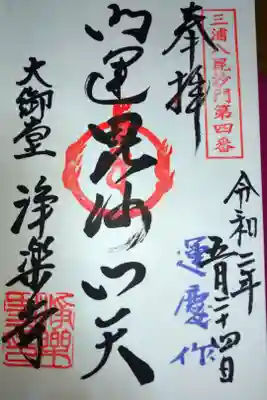 三浦八毘沙門第四番
奉拝
令和二年
五月二十四日
運慶作
開運毘沙門天
大御堂 浄楽寺